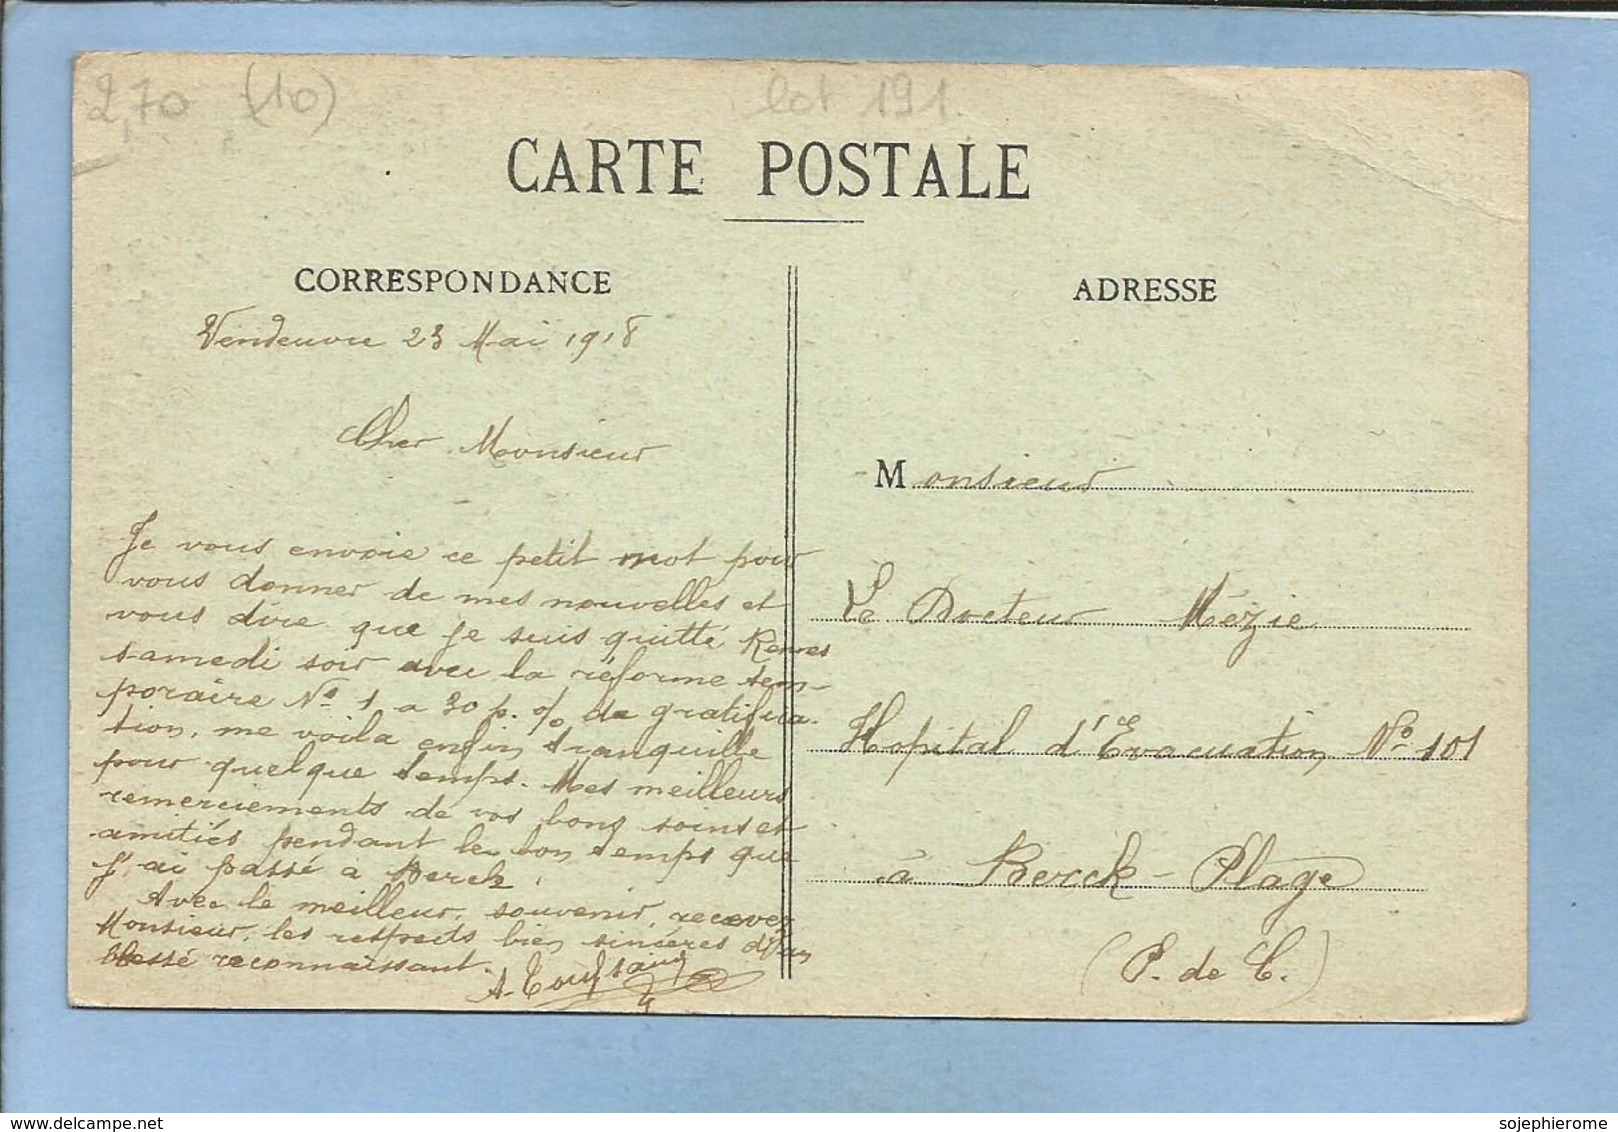 2,70 (10)
lot 191.
CARTE POSTALE
CORRESPONDANCE
Vendeuvre 23 Mai 1918
Cher Monsieur
Je vous envoie ce petit mot pour
vous donner de mes nouvelles et
vous dire que je suis quitté Rennes
samedi soir avec la réforme tem-
poraire No 1 a 30 p. % de gratifica-
tion, me voila enfin tranquille
pour quelque temps. Mes meilleurs
remerciements de vos bons soins et
amitiés pendant le bon temps que
j'ai passé a Berck.
Avec le meilleur souvenir, recevez
Monsieur, les respects bien sincères d'un
blessé reconnaissant.
A. Toussaint
ADRESSE
Monsieur
Le Docteur Mézie
Hopital d'Evacuation No 101
à Berck-Plage
(P. de C.)
sojephierome